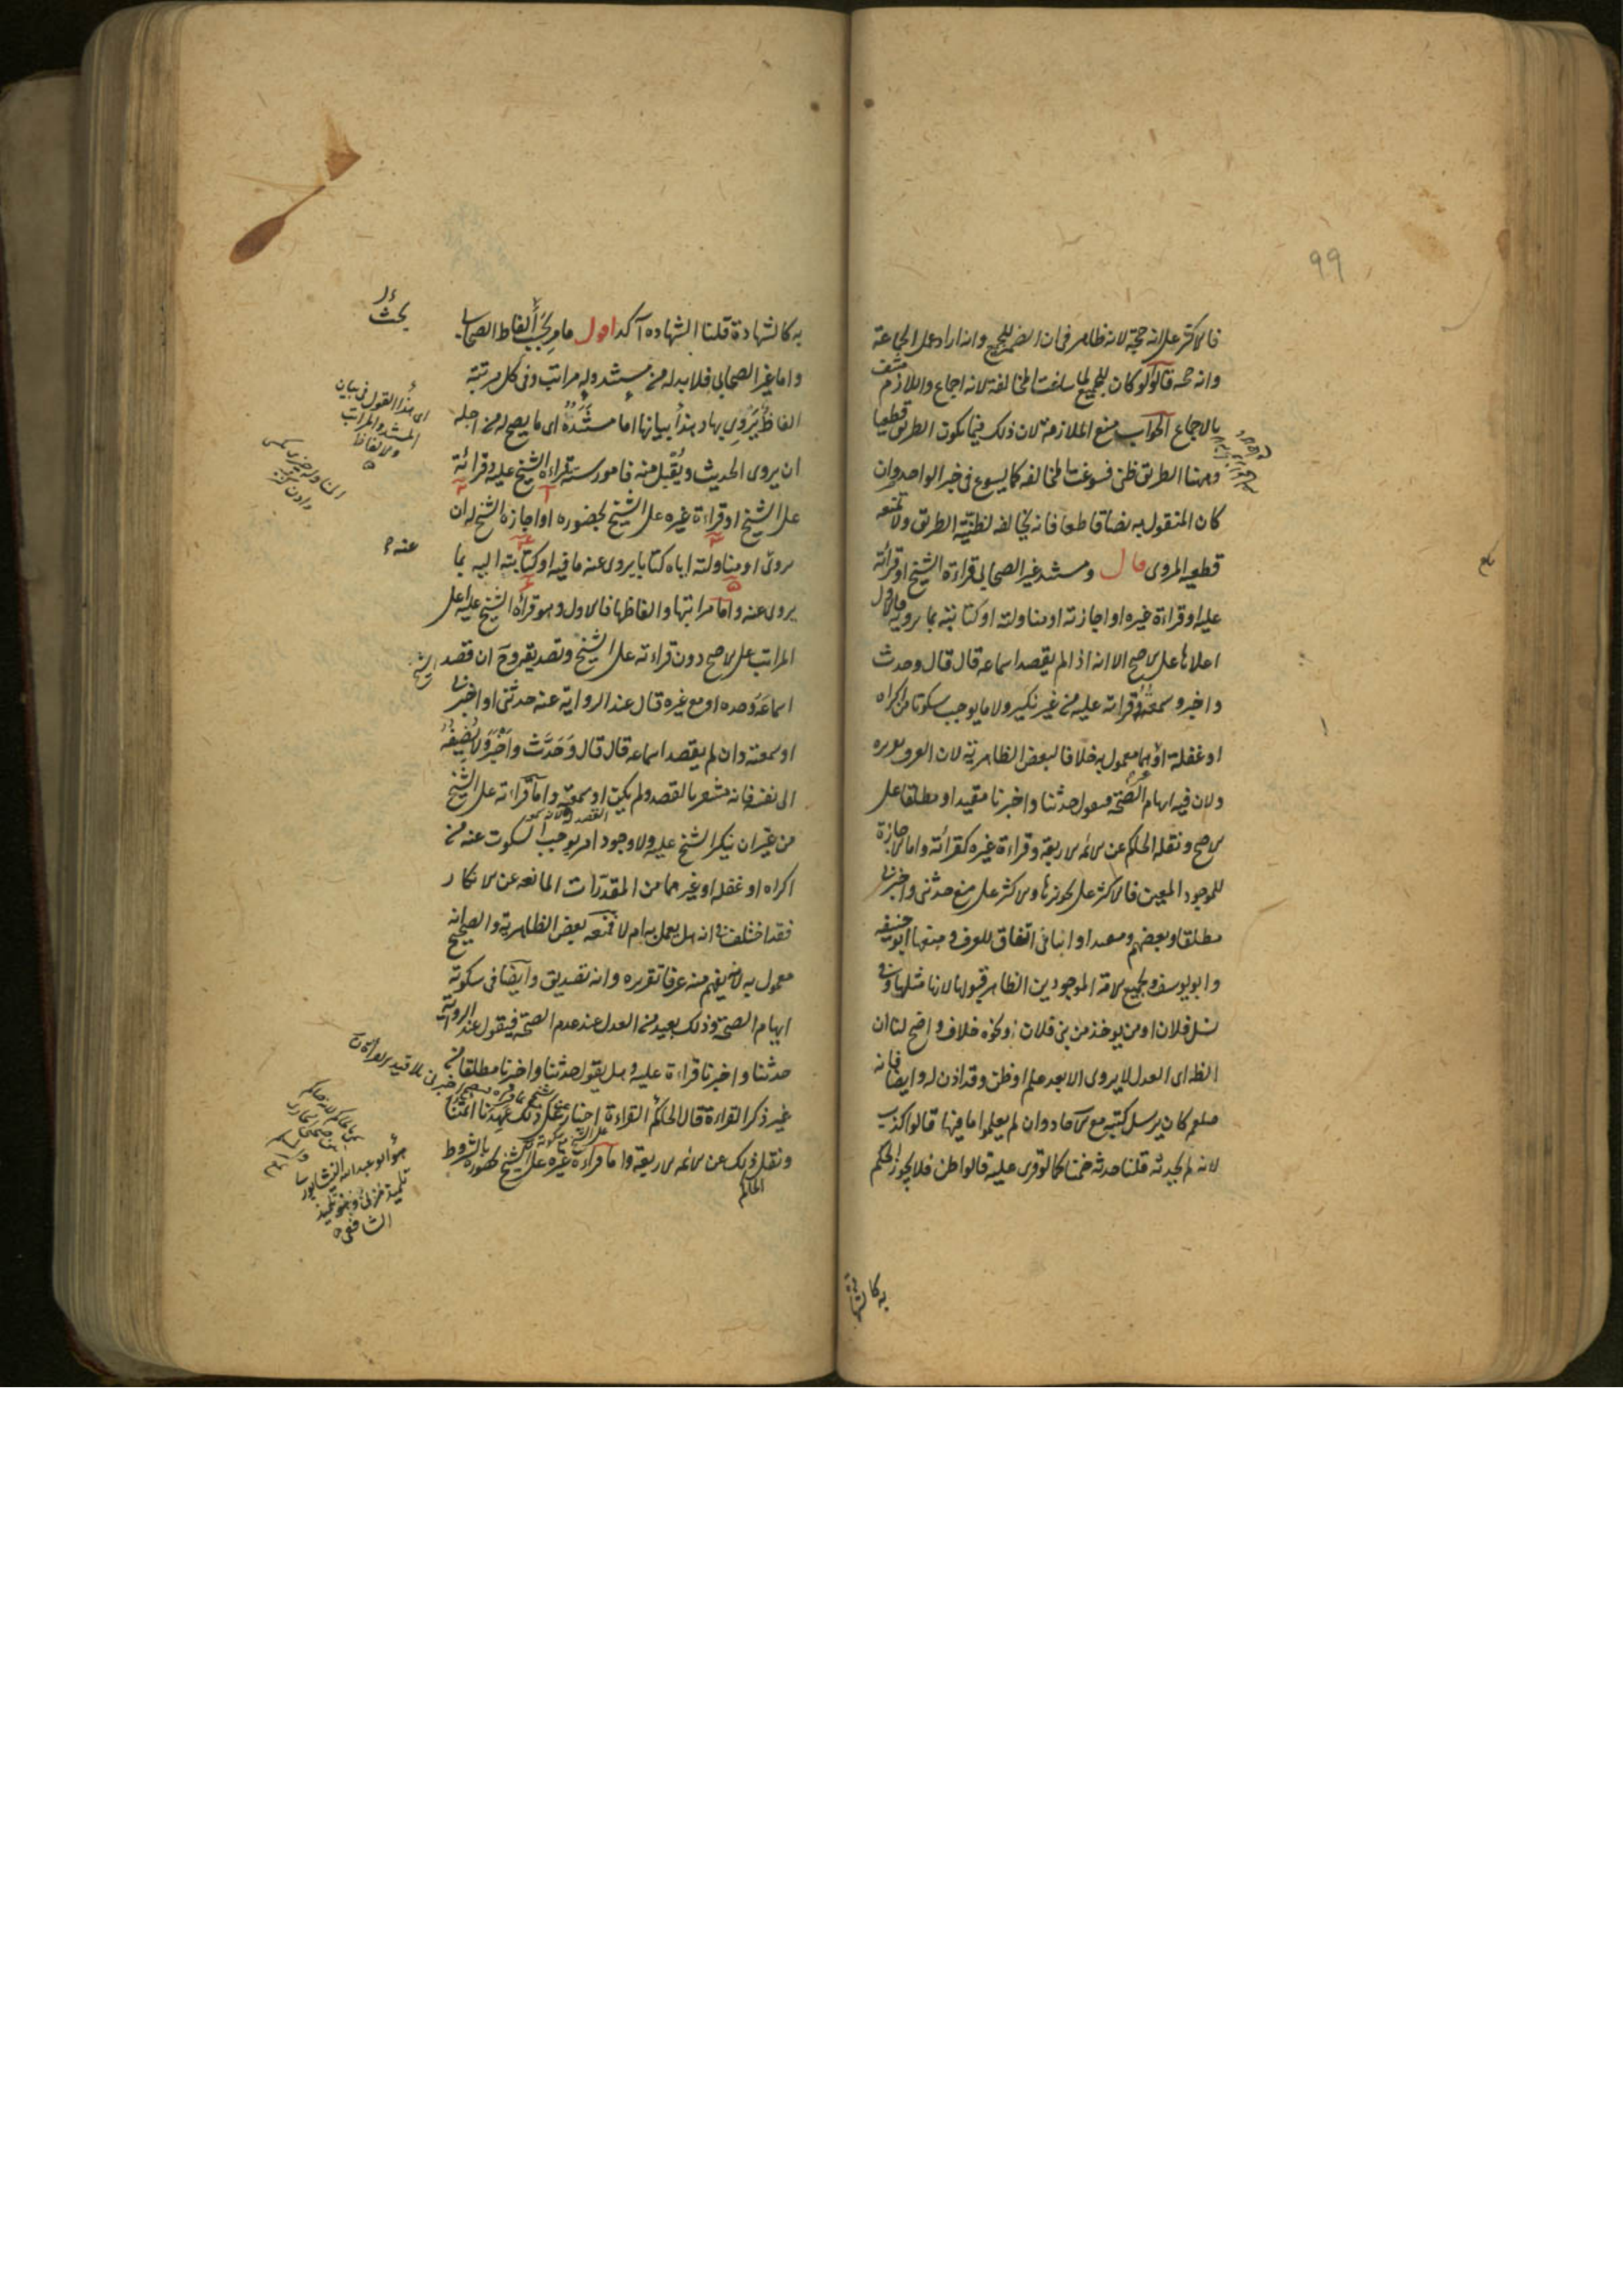 ٩٩
فالاكثر على انه حجة لانه ظاهر فى ان الضمير للجميع وانه اراد عمل الجماعة
وانه حجة قالوا لو كان للجميع لما ساغت المخالفة لانه اجماع واللازم منتف
بالاجماع الجواب منع الملازمة لان ذلك فيما يكون الطريق قطعيا
وههنا الطريق ظنى فسوغت المخالفة كما يسوغ فى خبر الواحد وان
كان المنقول به نصا قاطعا فانه يخالف لظنية الطريق ولا تمنعه
قطعية المروى قال ومستند غير الصحابى قراءة الشيخ او قرائته
عليه او قراءة غيره او اجازته او مناولته او كتابته بما يرويه فالاول
اعلاها على الاصح الا انه اذا لم يقصد اسماعه قال قال وحدث
واخبر وسمعته وقرائته عليه من غير نكير ولا ما يوجب سكوتا من اكراه
او غفلة او غيرهما معمول به خلافا لبعض الظاهرية لان العرف تقريره
ولان فيه ايهام الصحة فيقول حدثنا واخبرنا مقيدا او مطلقا على
الاصح ونقله الحاكم عن الائمة الاربعة وقراءة غيره كقرائته واما الاجازة
للموجود المعين فالاكثر على تجويزها والاكثر على منع حدثنى واخبرنى
مطلقا وبعضهم ومقيدا وانبانى اتفاق للعرف ومنعها ابو حنيفة
وابو يوسف ولجميع الامة الموجودين الظاهر قبولها لانها مثلها وفى
نسل فلان او من يوجد من بنى فلان ونحوه خلاف واضح لنا ان
الظاهر ان العدل لا يروى الا بعد علم او ظن وقد اذن له وايضا فانه
صلعم كان يرسل كتبه مع الآحاد وان لم يعلموا ما فيها قالوا كذب
لانه لم يحدثه قلنا حدثه ضمنا كما لو قرى عليه قالوا ظن فلا يجوز الحكم
به كالشهادة
به كالشهادة قلنا الشهادة آكد اقول ما مر بحث الفاظ الصحابى
واما غير الصحابى فلا بد له من مستند وله مراتب وفى كل مرتبة
الفاظ يروى بها وهذا بيانها اما مستنده اى ما يصح له من اجله
ان يروى الحديث ويقبل منه فامور ستة قراءة الشيخ عليه وقرائته
على الشيخ او قراءة غيره على الشيخ بحضوره او اجازة الشيخ له ان
يروى او مناولته اياه كتابا يروى عنه ما فيه او كتابته اليه بما
يروى عنه واما مراتبها والفاظها فالاول وهو قراءة الشيخ عليه اعلى
المراتب على الاصح دون قراءته على الشيخ وتصديقه وح ان قصد الشيخ
اسماعه وحده او مع غيره قال عند الرواية عنه حدثنى او اخبرنى
او سمعته وان لم يقصد اسماعه قال قال وحدث واخبر ولا يضيفه
الى نفسه فانه مشعر بالقصد ولم يكن او سمعته واما قراءته على الشيخ
من غير ان ينكر الشيخ عليه ولا وجود امر يوجب السكوت عنه من
اكراه او غفلة او غيرهما من المقدرات المانعة عن الانكار
فقد اختلف فى انه هل يعمل به ام لا فمنعه بعض الظاهرية والصحيح انه
معمول به لانه يفهم منه عرفا تقريره وانه تصديق وايضا فى سكوته
ايهام الصحة وذلك بعيد من العدل عند عدم الصحة فيقول عند الرواية
حدثنا واخبرنا قراءة عليه وهل يقول حدثنا واخبرنا مطلقا من
غير ذكر القراءة قال الحاكم القراءة اخبار على ذلك عهدنا ائمتنا
ونقل ذلك عن الائمة الاربعة واما قراءة غيره على الشيخ بحضوره بالشروط
الحاكم
بحث
اى هذا القول فى بيان
المستند والمراتب
والالفاظ
عنه
هو ابو عبد الله النيشابورى
الشافعى